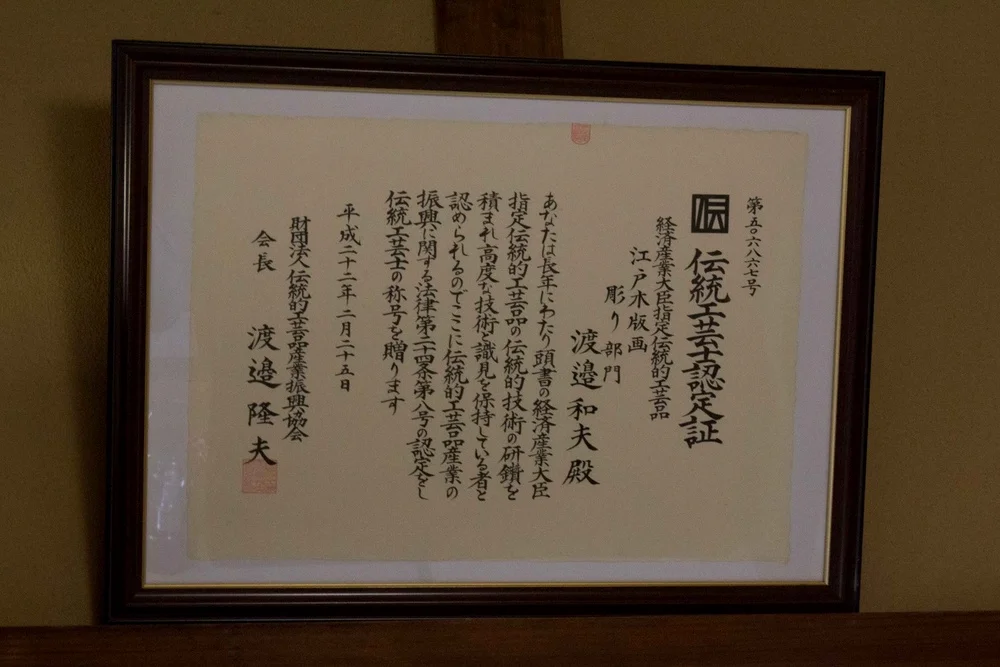 第五〇六八六七号
伝
伝統工芸士認定証
経済産業大臣指定伝統的工芸品
江戸木版画
彫り部門
渡邉和夫殿
あなたは長年にわたり頭書の経済産業大臣
指定伝統的工芸品の伝統的技術の研鑽を
積まれ高度な技術と識見を保持している者と
認められるのでここに伝統的工芸品産業の
振興に関する法律第二十四条第八号の認定をし
伝統工芸士の称号を贈ります
平成二十二年二月二十五日
財団法人伝統的工芸品産業振興協会
会長 渡邉隆夫